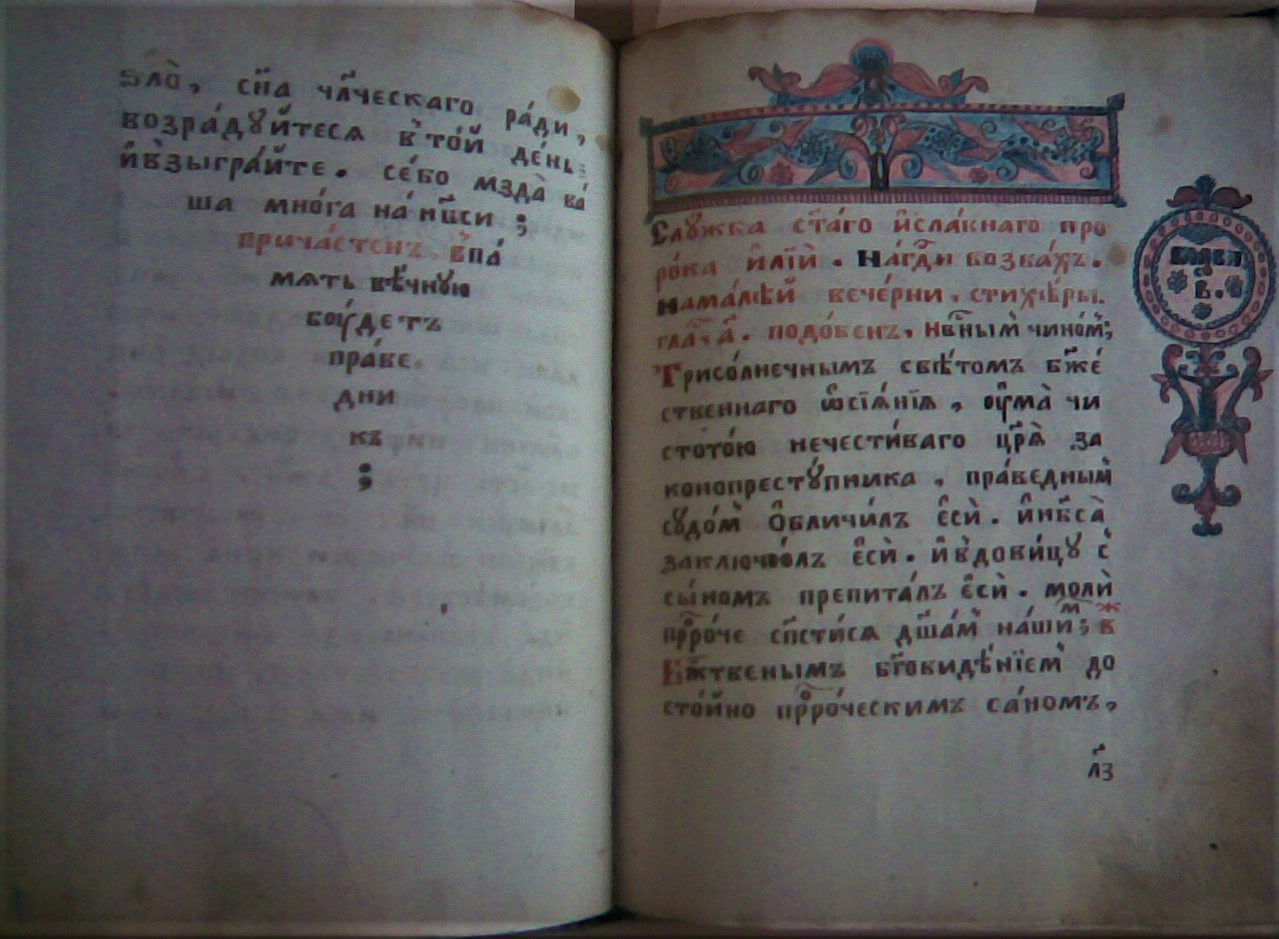 ѕло̀, сн҃а чл҃ческаго ра́ди,
возра́дꙋйтеся в̾то́й де́нь:
и҆взыгра́йте. се́бо мзда̀ ва́
ша мно́га на́ нб҃си ;
прича́стенъ. в̾па́
мѧть вѣ́чнꙋю
боу́детъ
пра́ве.
дни
къ
;
Слꙋ́жба ст҃а́го и҆сла́внаго про
ро́ка и҆лїи́. На гд҃и воззва́хъ.
на ма́лѣй вече́рни. стихѣ́ры.
гла́съ а҃. подо́бен. нбⷭ҇ным̾ чино́м̾;
Трисо́лнечнымъ свѣ́томъ бж҃е́
ственнаго ѡ҆сїѧ́нїѧ, оу҆ма̀ чи
стото́ю нечести́ваго цр҃ѧ̀ за
конопрестꙋ́пника, пра́ведным̾
сꙋдо́м̾ ѡ҆бличи́лъ є҆сѝ. и҆нб҃са̀
заключи́лъ є҆сѝ. и҆вдови́цꙋ с̾
сы́номъ препита́лъ є҆сѝ. молѝ
прⷪ҇ро́че спⷭ҇ти́ся дш҃а́м̾ на́шим̾; в҃ж
Бж҃твеным̾ъ бг҃ови́дѣ́нїем̾ до
сто́йно прⷪ҇ро́ческимъ са́номъ,
л҃з
в҃.